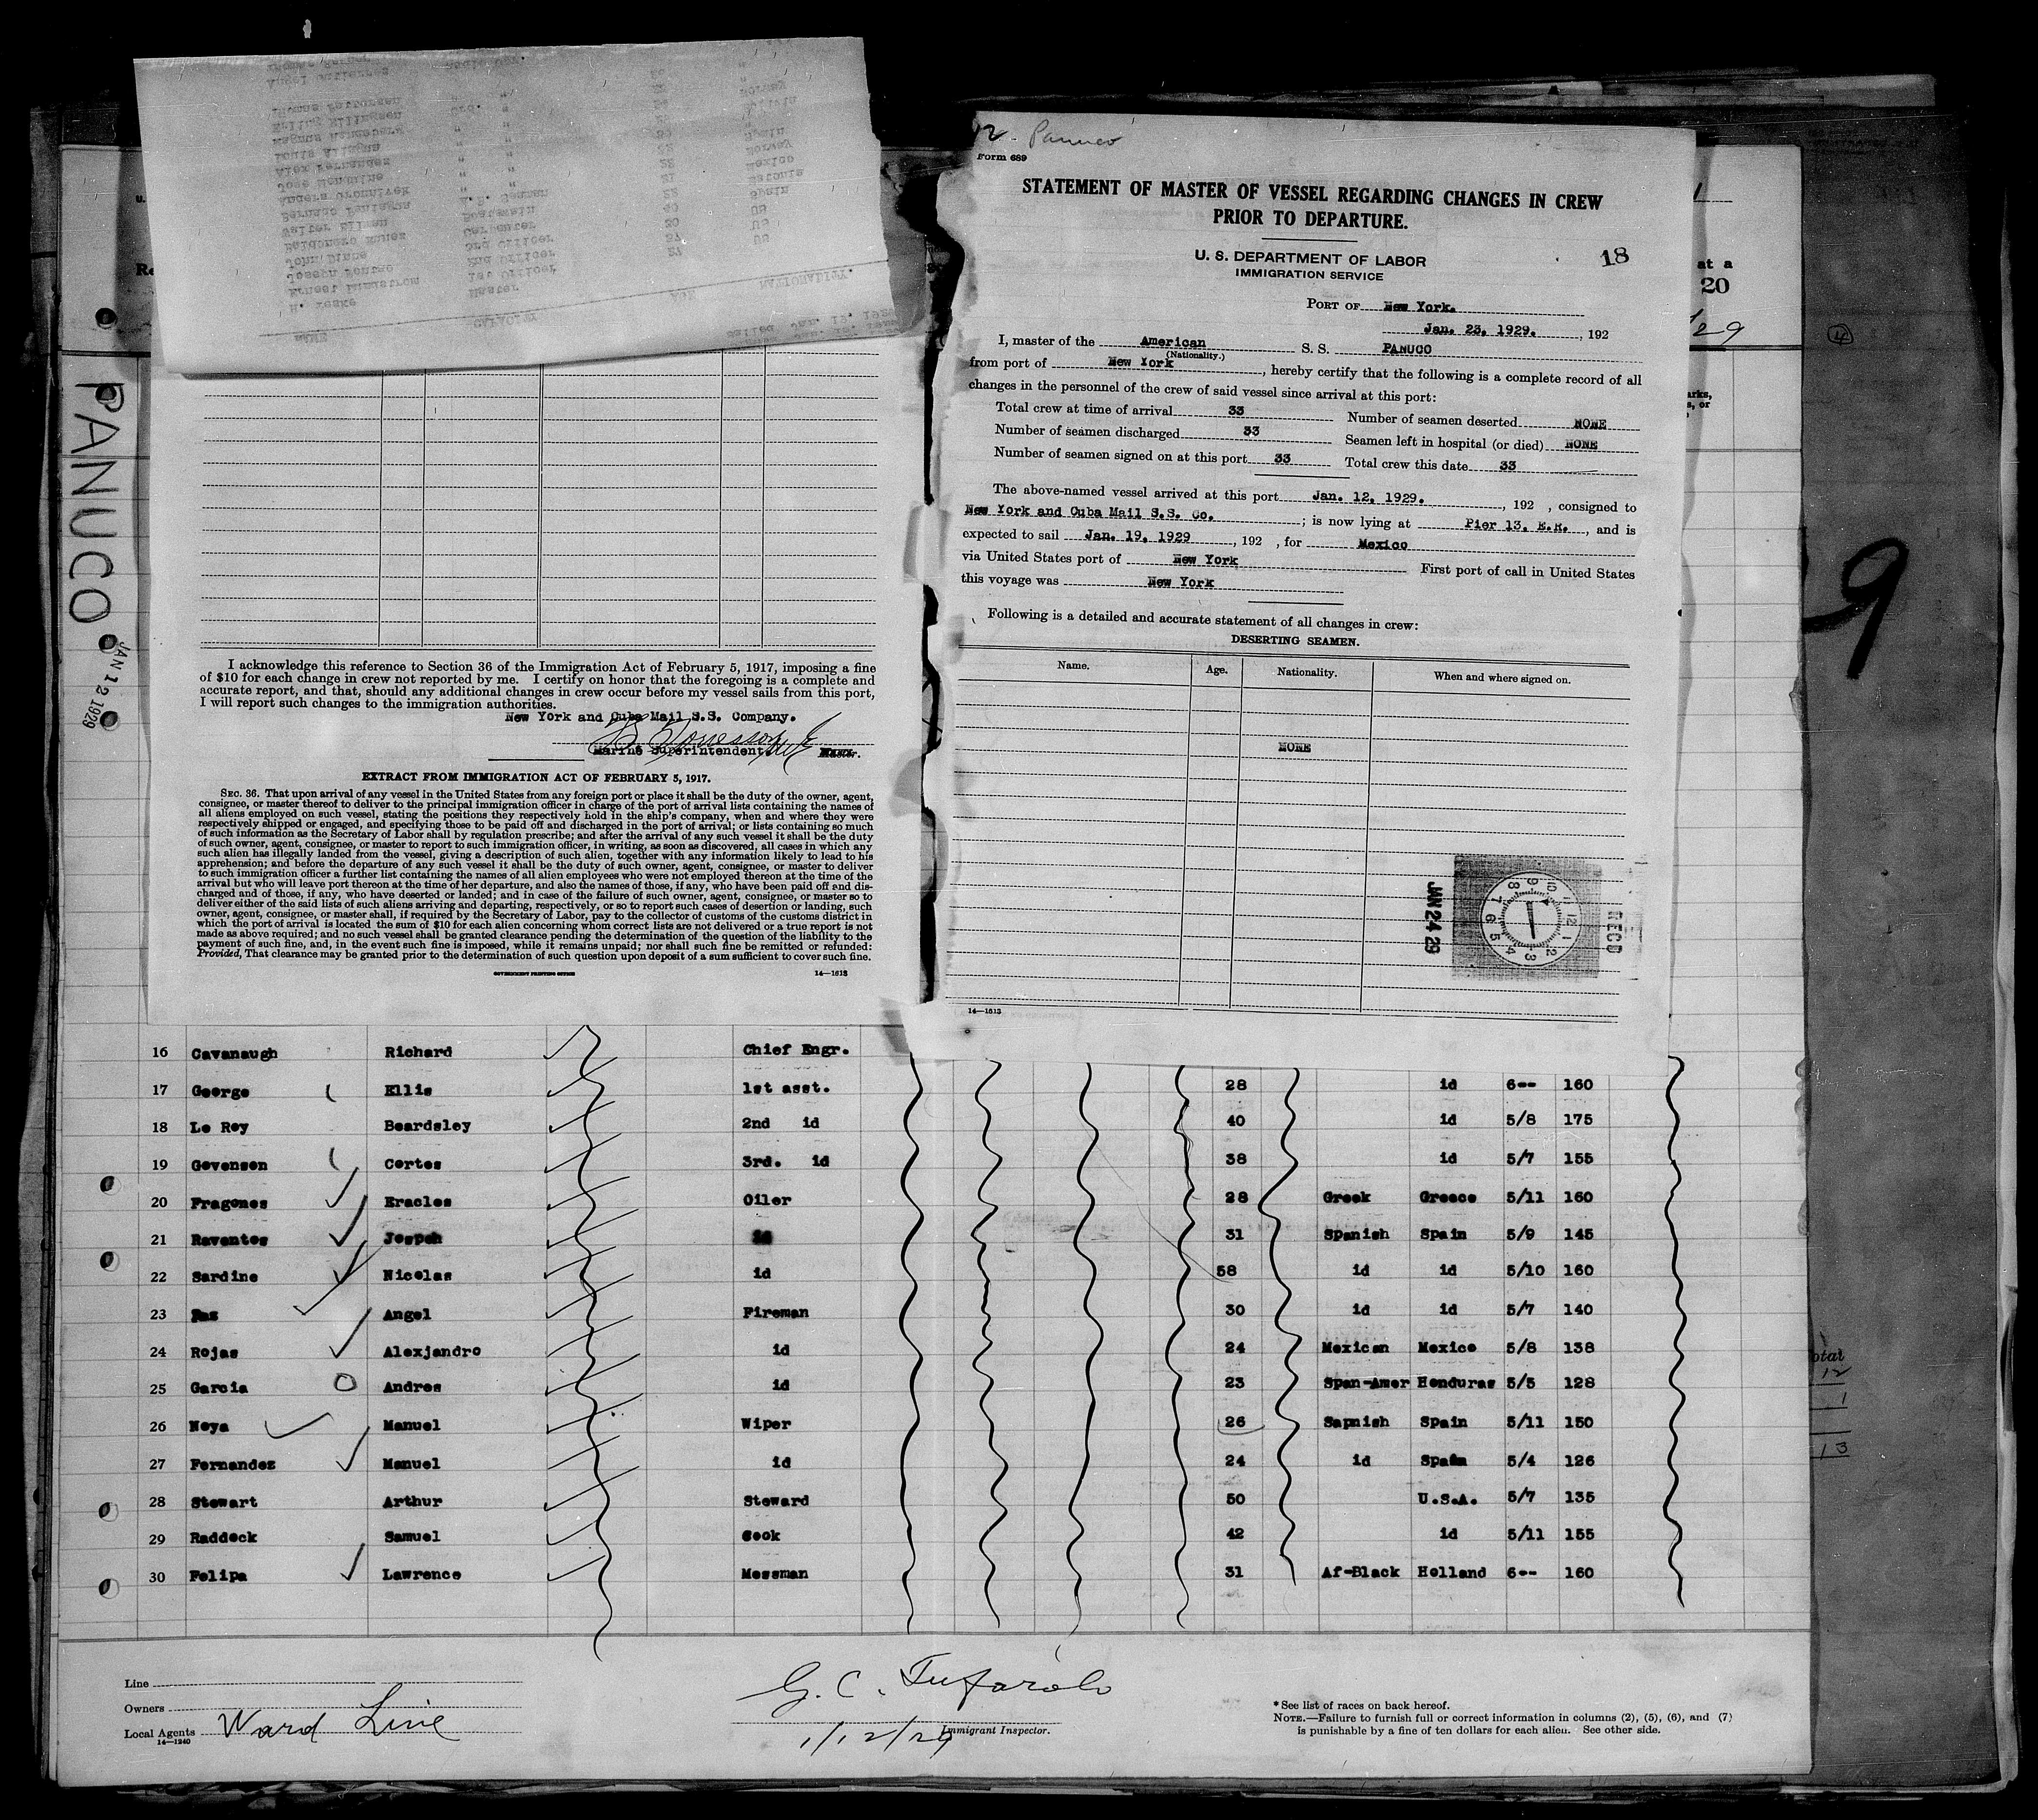 PANUCO
JAN 12 1929
NAME CAPACITY AGE NATIONALITY.
H. Yeske Master
1st Officer
2nd Officer 27 US
John Dinne 3rd Officer 37 US
Carpenter 30 US
Walter Boatswain 40
A.B. Seaman 22 Spain
" " 21
" " 28 Mexico
" " Norway
Spain
I acknowledge this reference to Section 36 of the Immigration Act of February 5, 1917, imposing a fine
of $10 for each change in crew not reported by me. I certify on honor that the foregoing is a complete and
accurate report, and that, should any additional changes in crew occur before my vessel sails from this port,
I will report such changes to the immigration authorities.
New York and Cuba Mail S.S. Company.
Marine Superintendent
EXTRACT FROM IMMIGRATION ACT OF FEBRUARY 5, 1917.
SEC. 36. That upon arrival of any vessel in the United States from any foreign port or place it shall be the duty of the owner, agent,
consignee, or master thereof to deliver to the principal immigration officer in charge of the port of arrival lists containing the names of
all aliens employed on such vessel, stating the positions they respectively hold in the ship's company, when and where they were
respectively shipped or engaged, and specifying those to be paid off and discharged in the port of arrival; or lists containing so much
of such information as the Secretary of Labor shall by regulation prescribe; and after the arrival of any such vessel it shall be the duty
of such owner, agent, consignee, or master to report to such immigration officer, in writing, as soon as discovered, all cases in which any
such alien has illegally landed from the vessel, giving a description of such alien, together with any information likely to lead to his
apprehension; and before the departure of any such vessel it shall be the duty of such owner, agent, consignee, or master to deliver
to such immigration officer a further list containing the names of all alien employees who were not employed thereon at the time of the
arrival but who will leave port thereon at the time of her departure, and also the names of those, if any, who have been paid off and dis-
charged and of those, if any, who have deserted or landed; and in case of the failure of such owner, agent, consignee, or master so to
deliver either of the said lists of such aliens arriving and departing, respectively, or so to report such cases of desertion or landing, such
owner, agent, consignee, or master shall, if required by the Secretary of Labor, pay to the collector of customs of the customs district in
which the port of arrival is located the sum of $10 for each alien concerning whom correct lists are not delivered or a true report is not
made as above required; and no such vessel shall be granted clearance pending the determination of the question of the liability to the
payment of such fine, and, in the event such fine is imposed, while it remains unpaid; nor shall such fine be remitted or refunded:
Provided, That clearance may be granted prior to the determination of such question upon deposit of a sum sufficient to cover such fine.
GOVERNMENT PRINTING OFFICE 14—1613
Panuco
Form 689
STATEMENT OF MASTER OF VESSEL REGARDING CHANGES IN CREW
PRIOR TO DEPARTURE.
U. S. DEPARTMENT OF LABOR
IMMIGRATION SERVICE
18
PORT OF New York.
Jan. 23, 1929. , 192
I, master of the American S. S. PANUCO
(Nationality.)
from port of New York, hereby certify that the following is a complete record of all
changes in the personnel of the crew of said vessel since arrival at this port:
Total crew at time of arrival 33 Number of seamen deserted NONE
Number of seamen discharged 33 Seamen left in hospital (or died) NONE
Number of seamen signed on at this port 33 Total crew this date 33
The above-named vessel arrived at this port Jan. 12, 1929. , 192 , consigned to
New York and Cuba Mail S.S. Co. ; is now lying at Pier 13, E.R. , and is
expected to sail Jan. 19, 1929 , 192 , for Mexico
via United States port of New York First port of call in United States
this voyage was New York
Following is a detailed and accurate statement of all changes in crew:
DESERTING SEAMEN.
Name. Age. Nationality. When and where signed on.
NONE
REC'D
JAN 24 29
14—1613
at a
20
9
16 Cavanaugh Richard Chief Engr.
17 George Ellis 1st asst. 28 id 6-- 160
18 Le Roy Beardsley 2nd id 40 id 5/8 175
19 Govenson Cortes 3rd. id 38 id 5/7 155
20 Fragones Eracles Oiler 28 Greek Greece 5/11 160
21 Raventos Jospeh 31 Spanish Spain 5/9 145
22 Sardine Nicolas id 58 id id 5/10 160
23 Angel Fireman 30 id id 5/7 140
24 Rojas Alexjandro id 24 Mexican Mexico 5/8 138
25 Garcia Andres id 23 Span-Amer Honduras 5/5 128
26 Noya Manuel Wiper 26 Sapnish Spain 5/11 150
27 Fernandez Manuel id 24 id Spain 5/4 126
28 Stewart Arthur Steward 50 U.S.A. 5/7 135
29 Raddock Samuel Cook 42 id 5/11 155
30 Felipa Lawrence Messman 31 Af-Black Holland 6-- 160
Line
Owners
Local Agents Ward Line
14—1240
G. C. Tufarolo
Immigrant Inspector.
1/12/29
* See list of races on back hereof.
NOTE.—Failure to furnish full or correct information in columns (2), (5), (6), and (7)
is punishable by a fine of ten dollars for each alien. See other side.
otal
12
1
13